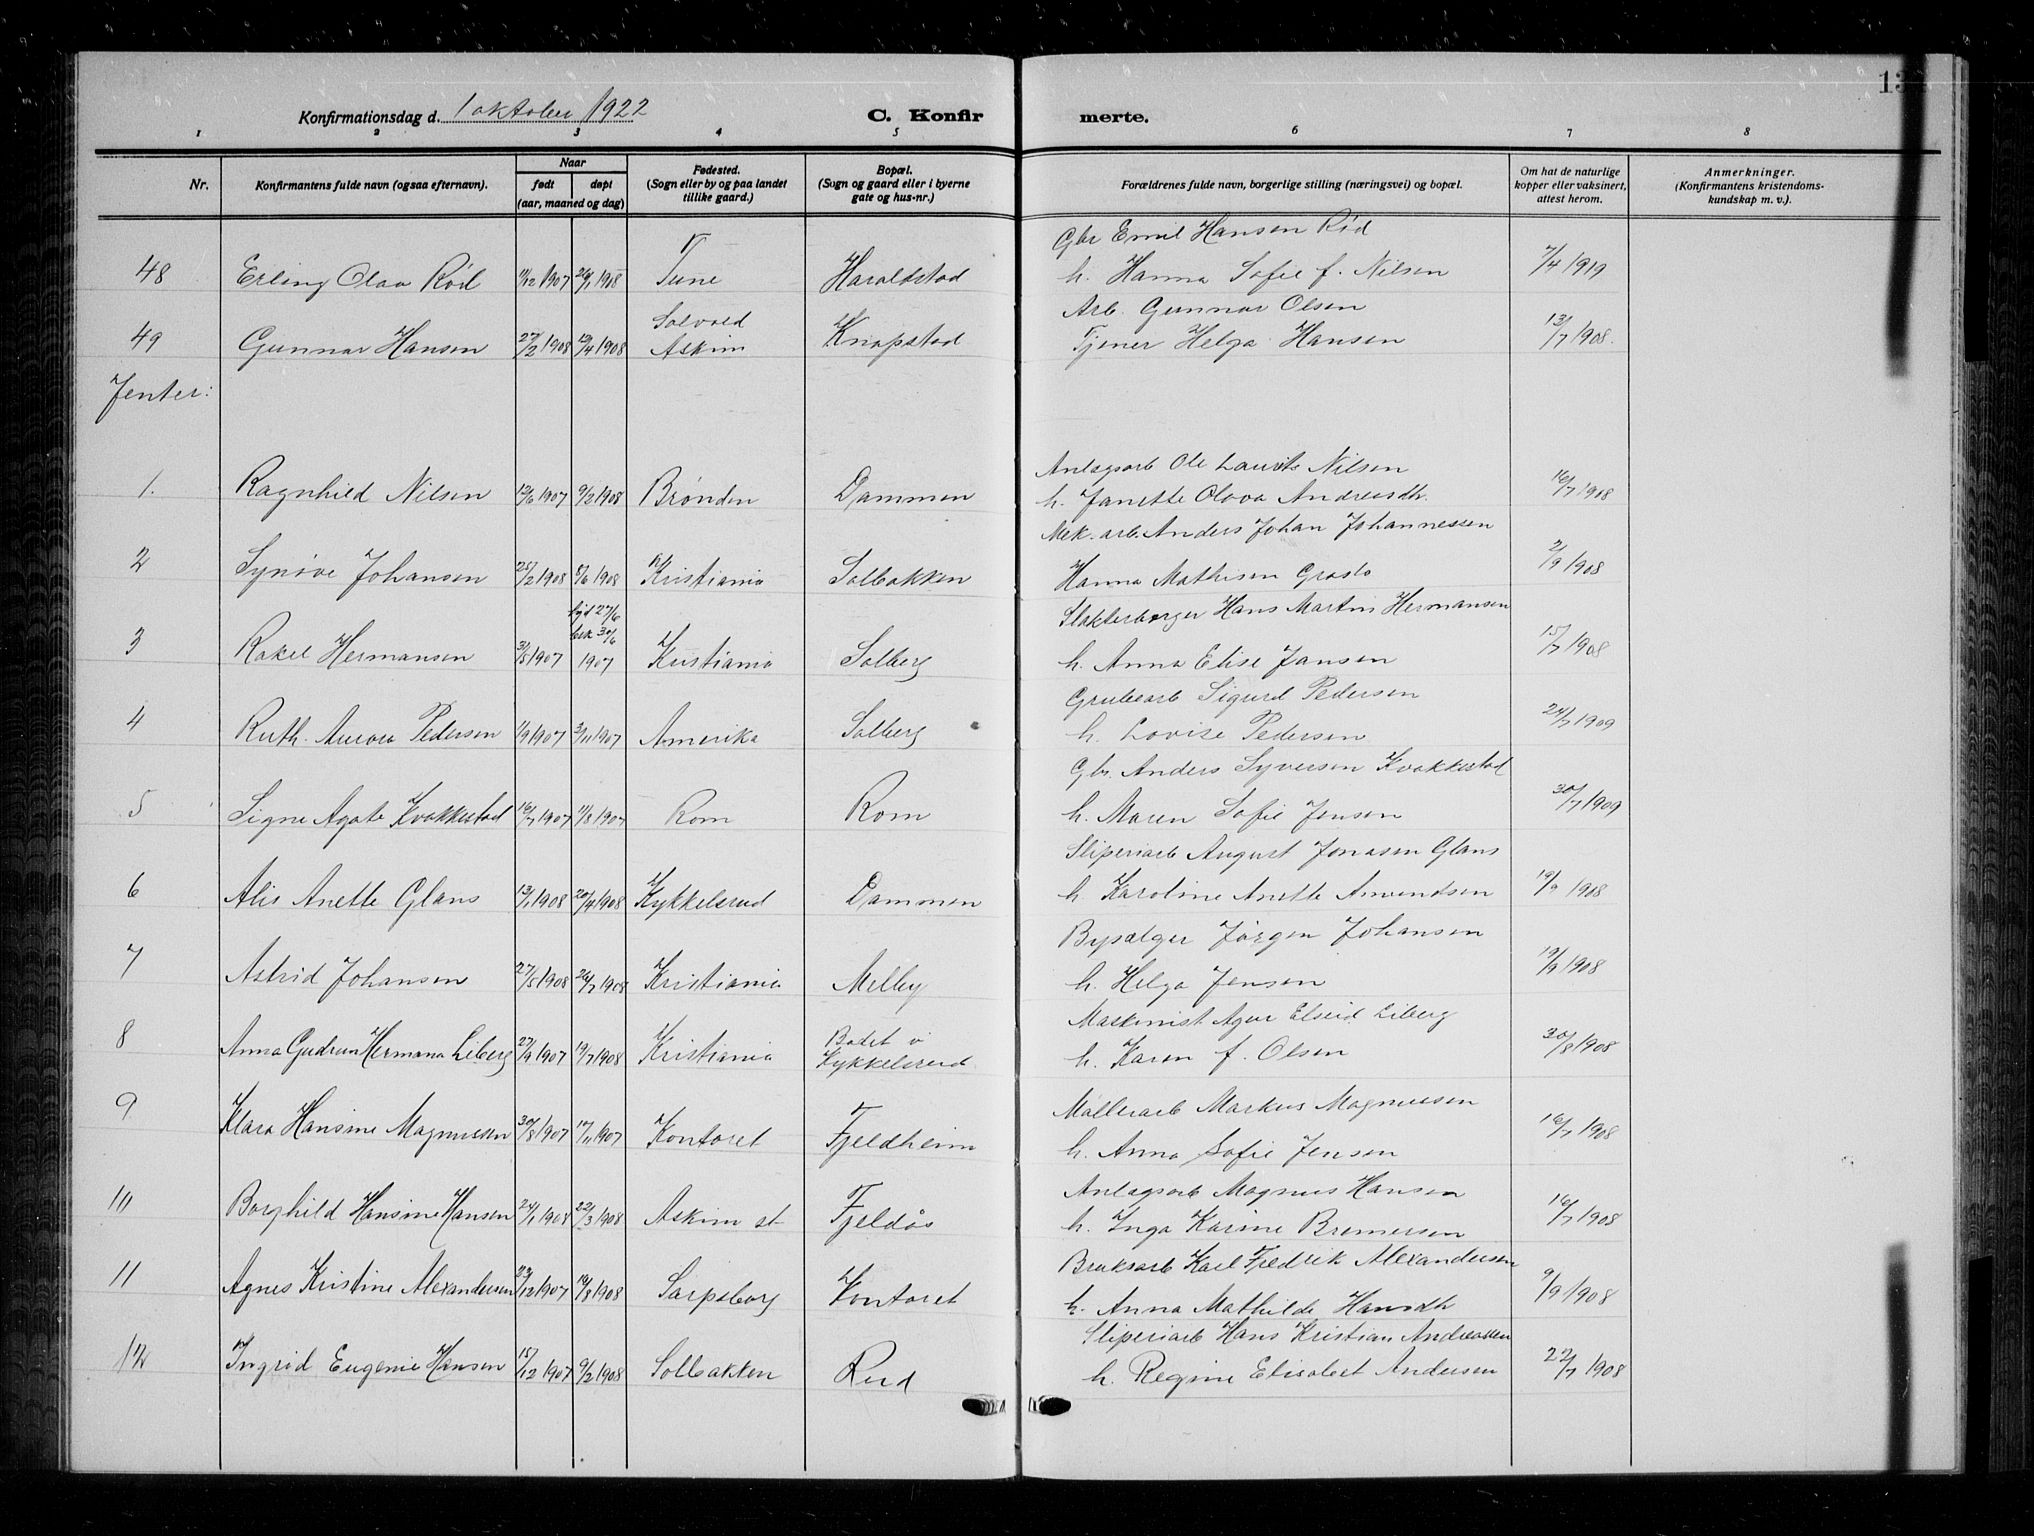 13
Konfirmationsdag d. 1 oktober 1922 C. Konfirmerte.
1 2 3 4 5 6 7 8
Nr. Konfirmantens fulde navn (ogsaa efternavn). Naar født døpt (aar, maaned og dag) Fødested. (Sogn eller by og paa landet tillike gaard.) Bopæl. (Sogn og gaard eller i byerne gate og hus-nr.) Forældrenes fulde navn, borgerlige stilling (næringsvei) og bopæl. Om hat de naturlige kopper eller vaksinert, attest herom. Anmerkninger. (Konfirmantens kristendoms-kundskap m. v.).
Gbr Emil Hansen Rød
48 Erling Olaa Rød 11/12 1907 26/1 1908 Tune Haraldstad h. Hanna Sofie f. Nilsen 7/4 1919
Solvold Arb. Gunnar Olsen
49 Gunnar Hansen 27/2 1908 12/4 1908 Askim Knapstad Tjener Helga Hansen 13/7 1908.
Jenter:
Anlagsarb Ole Laurits Nilsen
1. Ragnhild Nilsen 13/6 1907 9/2 1908 Brønden Dammen h. Janette Olava Andreasdh. 16/7 1908
Mek. arb. Anders Johan Johannessen
2 Synøve Johansen 25/2 1908 8/6 1908 Kristiania Solbakken Hanna Mathisen Grasto 2/9 1908
hjd 27/6 Slakterborger Hans Martin Hermansen
bek 30/6
3 Rakel Hermansen 31/5 1907 1907 Kristiania Solberg h. Anna Elise Jansen 15/7 1908
Grubearb Sigurd Pedersen
4 Ruth Aurora Pedersen 1/9 1907 3/11 1907 Amerika Solberg h. Lovise Pedersen 24/7 1909
Gbr. Anders Syversen Kvakkestad
5 Signe Agate Kvakkestad 16/7 1907 11/8 1907 Rom Rom h. Maren Sofie Jensen 30/7 1909
Sliperiarb August Jonasen Glans
6 Alis Anette Glans 13/1 1908 20/4 1908 Kykkelsrud Dammen h Karoline Anette Amundsen 19/9 1908
Bypælger Jørgen Johansen
7 Astrid Johansen 27/5 1908 26/7 1908 Kristiania Melby h. Helga Jensen 19/9 1908
Maskinist Agur Elseid Liberg
8 Anna Gudrun Hermana Liberg 27/9 1907 19/7 1908 Kristiania Badet v Kykkelsrud h. Karen f. Olsen 30/8 1908
Møllerarb Markus Magnussen
9 Klara Hansine Magnussen 30/8 1907 10/11 1907 Kontoret Fjeldheim h. Anna Sofie Jensen 16/7 1908
Anlagsarb Magnus Hansen
10 Borghild Hansine Hansen 24/1 1908 22/3 1908 Askim st Fjeldås h. Inga Karine Bremersen 16/7 1908
Bruksarb Karl Fredrik Alexandersen
11 Agnes Kristine Alexandersen 23/12 1907 16/8 1908 Sarpsborg Kontoret h. Anna Mathilde Hansdh 9/9 1908
Sliperiarb Hans Kristian Andreassen
12 Ingrid Eugenie Hansen 15/12 1907 9/2 1908 Solbakken Rud h. Regine Elisabet Andersen 22/7 1908